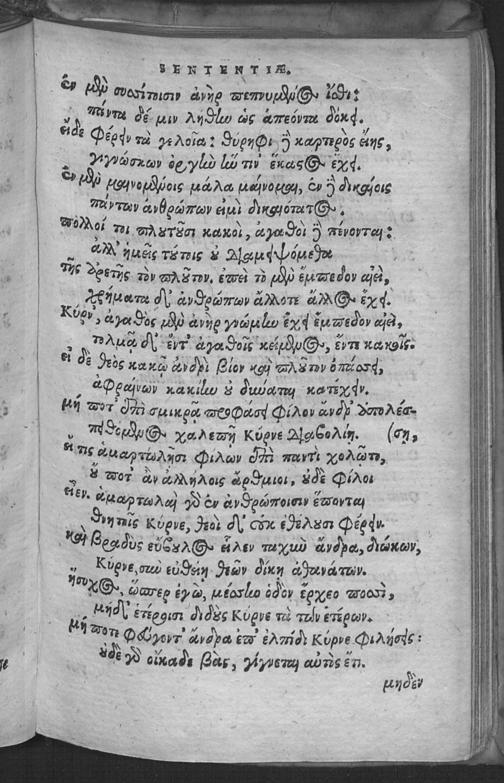 SENTENTIÆ.
ἐν μὲν συσσίτοισιν ἀνὴρ πεπνυμένος ἴσθι:
πάντα δέ μιν λήθειν ὡς ἀπεόντα δόκει.
εἰδε φέρειν τὰ γελοῖα: θύρηφι ἢ καρτερὸς εἴης,
γιγνώσκων ὀργὴν ἥν τιν' ἕκαστος ἔχει.
ἐν μὲν μαινομένοις μάλα μαίνομαι, ἐν ἢ δικαίοις
πάντων ἀνθρώπων εἰμὶ δικαιότατος.
πολλοί τοι πλουτοῦσι κακοὶ, ἀγαθοὶ ἢ πένονται:
ἀλλ' ἡμεῖς τούτοις οὐ διαμειψόμεθα
τῆς ἀρετῆς τὸν πλοῦτον. ἐπεὶ τὸ μὲν ἔμπεδον αἰεὶ,
χρήματα δ' ἀνθρώπων ἄλλοτε ἄλλος ἔχει.
Κύρν', ἀγαθὸς μὲν ἀνὴρ γνώμην ἔχει ἔμπεδον αἰεὶ,
τολμᾷ δ' ἔντ' ἀγαθοῖς κείμενος, ἔντε κακοῖς.
εἰ δὲ θεὸς κακῷ ἀνδρὶ βίον καὶ πλοῦτον ὀπάσσει,
ἀφραίνων κακίην οὐ δύναται κατέχειν.
μή ποτ' ἐπὶ σμικρᾷ προφάσει φίλον ἄνδρ' ἀπολέσ-
πειθόμενος χαλεπῇ Κύρνε διαβολίῃ. (σῃ,
εἴ τις ἁμαρτωλῇσι φίλων ἐπὶ παντὶ χολῷτο,
οὔ ποτ' ἂν ἀλλήλοις ἄρθμιοι, οὐδὲ φίλοι
εἶεν. ἁμαρτωλαὶ γὰρ ἐν ἀνθρώποισιν ἕπονται
θνητοῖς Κύρνε, θεοὶ δ' οὐκ ἐθέλουσι φέρειν.
καὶ βραδὺς εὔβουλος εἷλεν ταχὺν ἄνδρα, διώκων,
Κύρνε, σὺν εὐθείῃ θεῶν δίκῃ ἀθανάτων.
ἥσυχος, ὥσπερ ἐγὼ, μέσσην ὁδὸν ἔρχεο ποσσὶ,
μηδ' ἑτέροισι διδοὺς Κύρνε τὰ τῶν ἑτέρων.
μή ποτε φεύγοντ' ἄνδρα ἐπ' ἐλπίδι Κύρνε φιλήσῃς:
οὐδὲ γὰρ οἴκαδε βὰς, γίγνεται αὐτὶς ἔτι.
μηδὲν